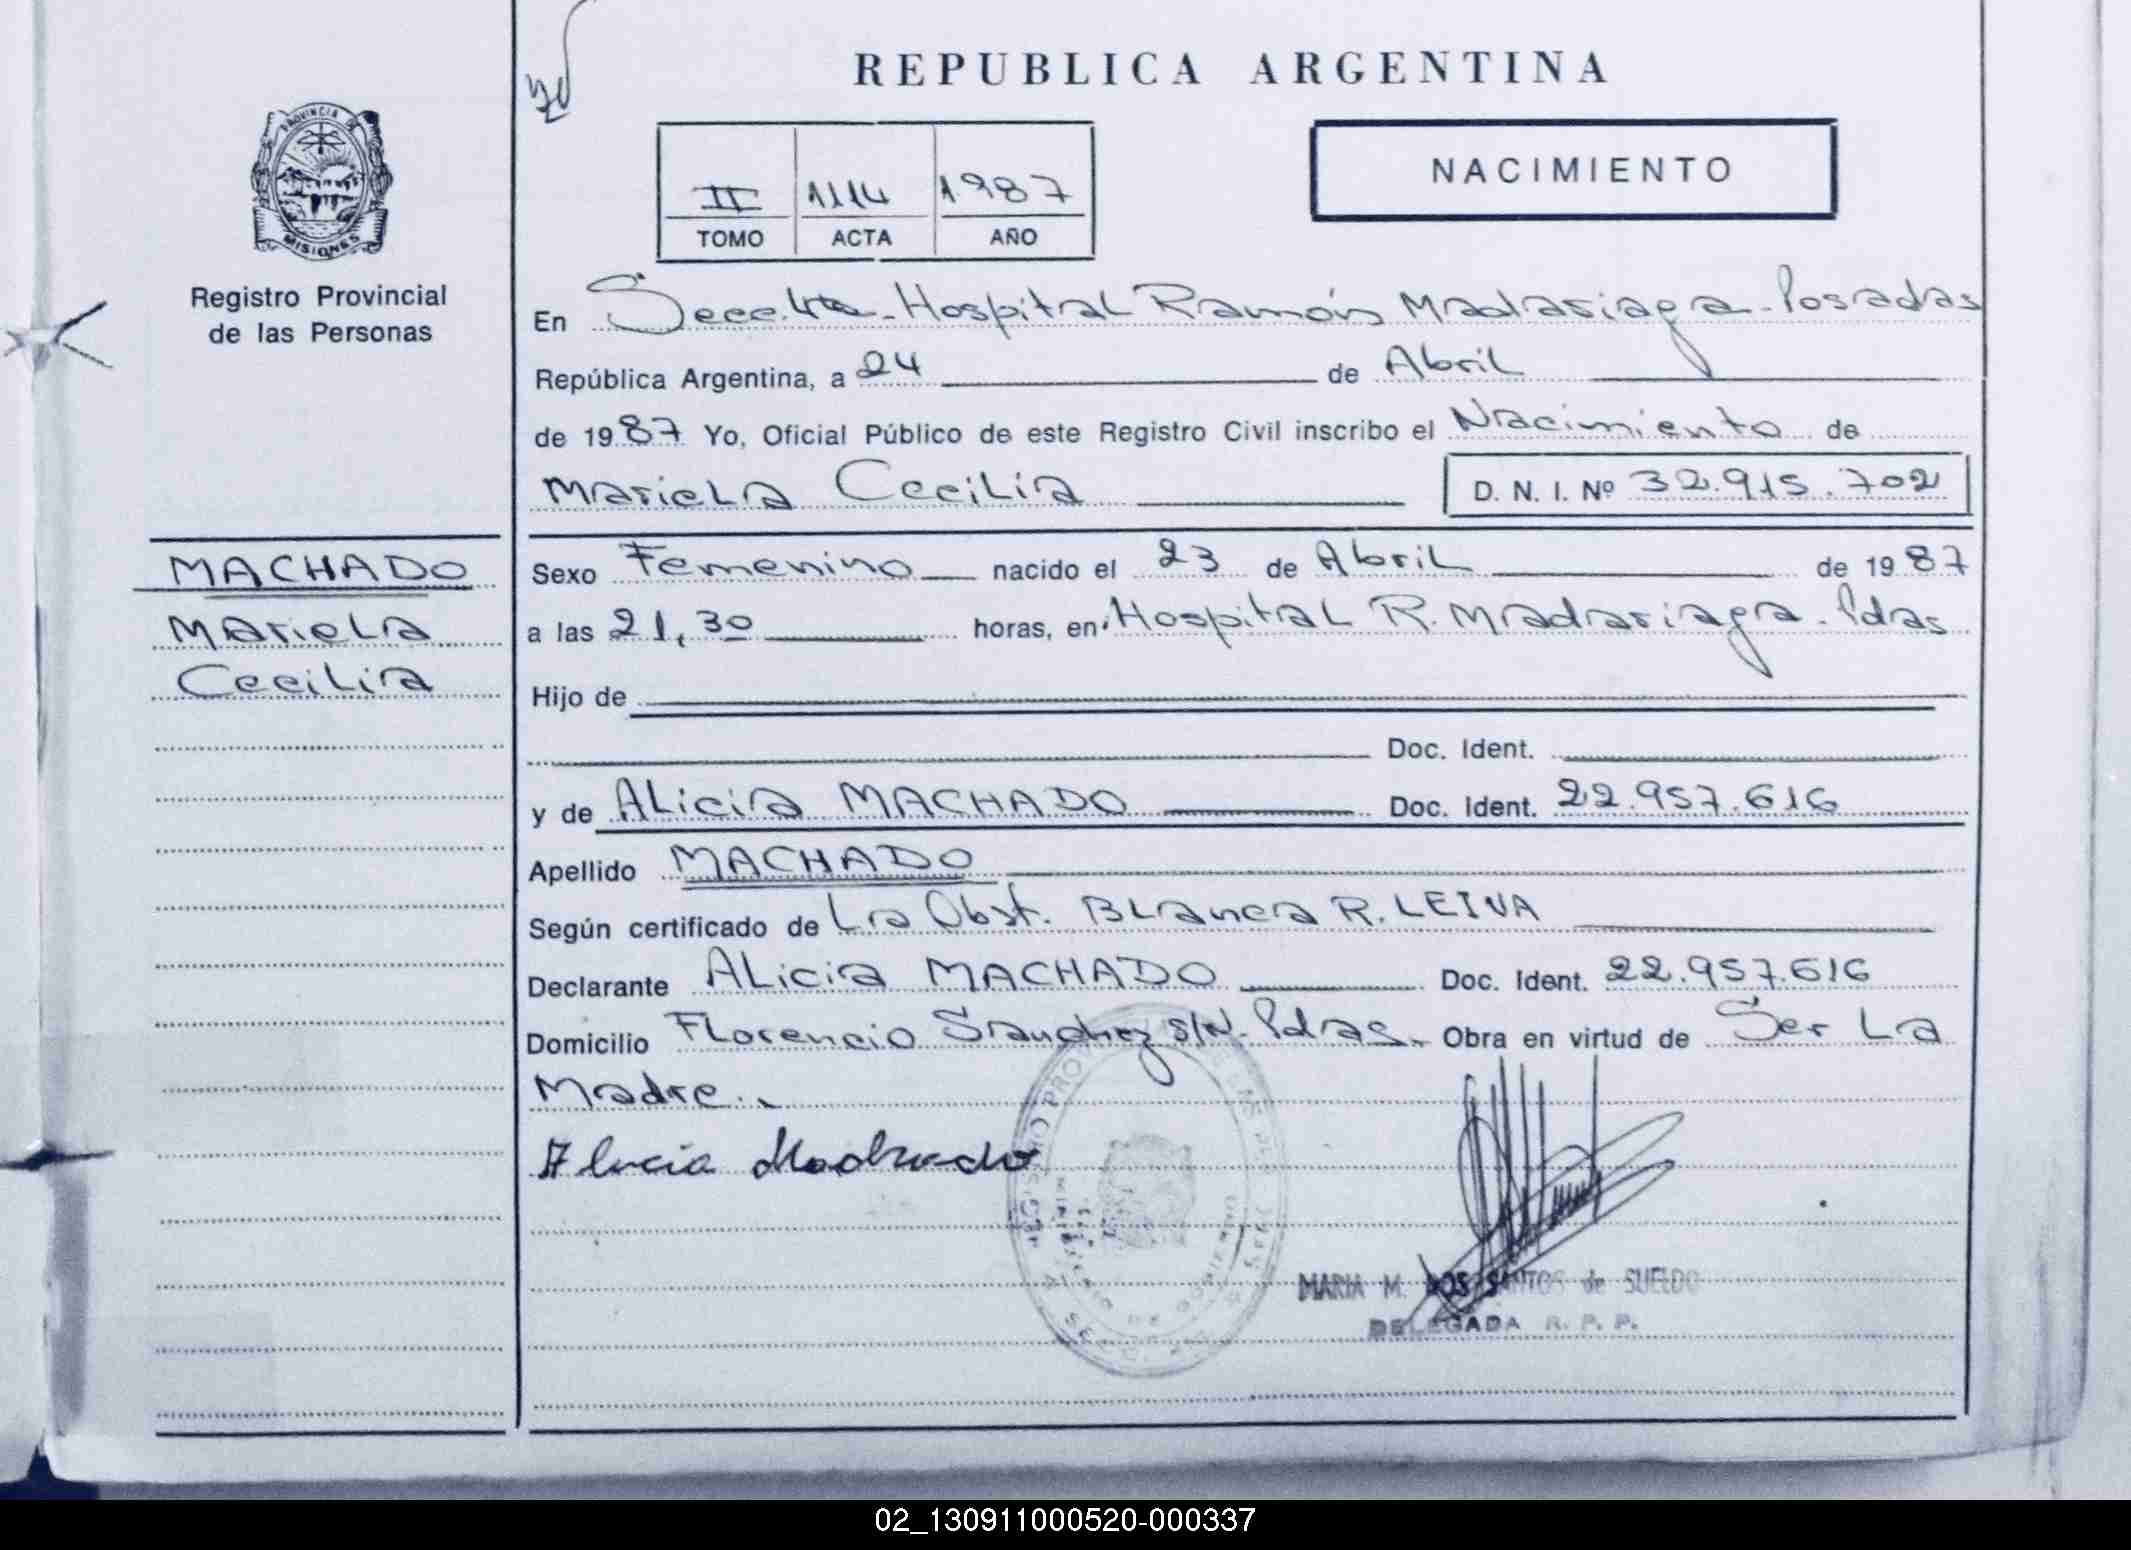 REPUBLICA ARGENTINA
PROVINCIA DE
MISIONES
Registro Provincial
de las Personas
II 1114 1987
TOMO ACTA AÑO
NACIMIENTO
En Secc. 4ta - Hospital Ramón Madariaga - Posadas
República Argentina, a 24 de Abril
de 1987 Yo, Oficial Público de este Registro Civil inscribo el Nacimiento de
Mariela Cecilia D. N. I. Nº 32.915.702
MACHADO
Mariela
Cecilia
Sexo Femenino nacido el 23 de Abril de 1987
a las 21,30 horas, en Hospital R. Madariaga. Pdas
Hijo de
Doc. Ident.
y de Alicia MACHADO Doc. Ident. 22.957.616
Apellido MACHADO
Según certificado de La Obst. Blanca R. LEIVA
Declarante Alicia MACHADO Doc. Ident. 22.957.616
Domicilio Florencio Sanchez S/N. Pdas. Obra en virtud de Ser La
Madre.
Alicia Machado
MARIA M. DOS SANTOS de SUELDO
DELEGADA R. P. P.
02_130911000520-000337